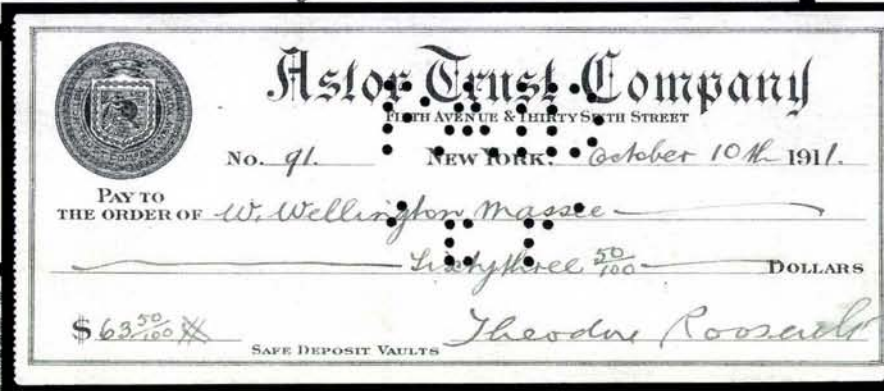 Astor Trust Company
FIFTH AVENUE & THIRTY SIXTH STREET
No. 91. NEW YORK, October 10th 1911.
PAY TO
THE ORDER OF W. Wellington Massee
Sixtythree 50/100 DOLLARS
$ 63 50/100
SAFE DEPOSIT VAULTS Theodore Roosevelt